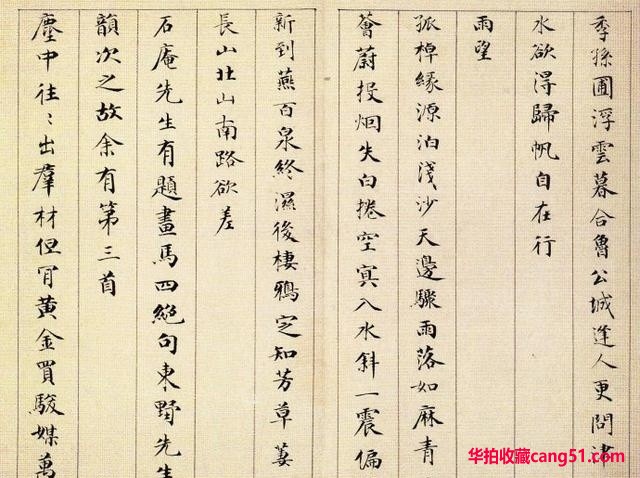 季孫圃浮雲暮合魯公城逢人更問津
水欲得歸帆自在行
雨望
孤棹緣源泊淺沙天邊驟雨落如麻青
薈蔚投烟失白捲空寘入水斜一震偏
新到燕百泉終濕後棲鴉定知芳草萋
長山北山南路欲差
石庵先生有題畫馬四絕句東野先生
韻次之故余有第三首
塵中往〻出羣材但肎黃金買駿媒萬
华拍收藏cang51.com